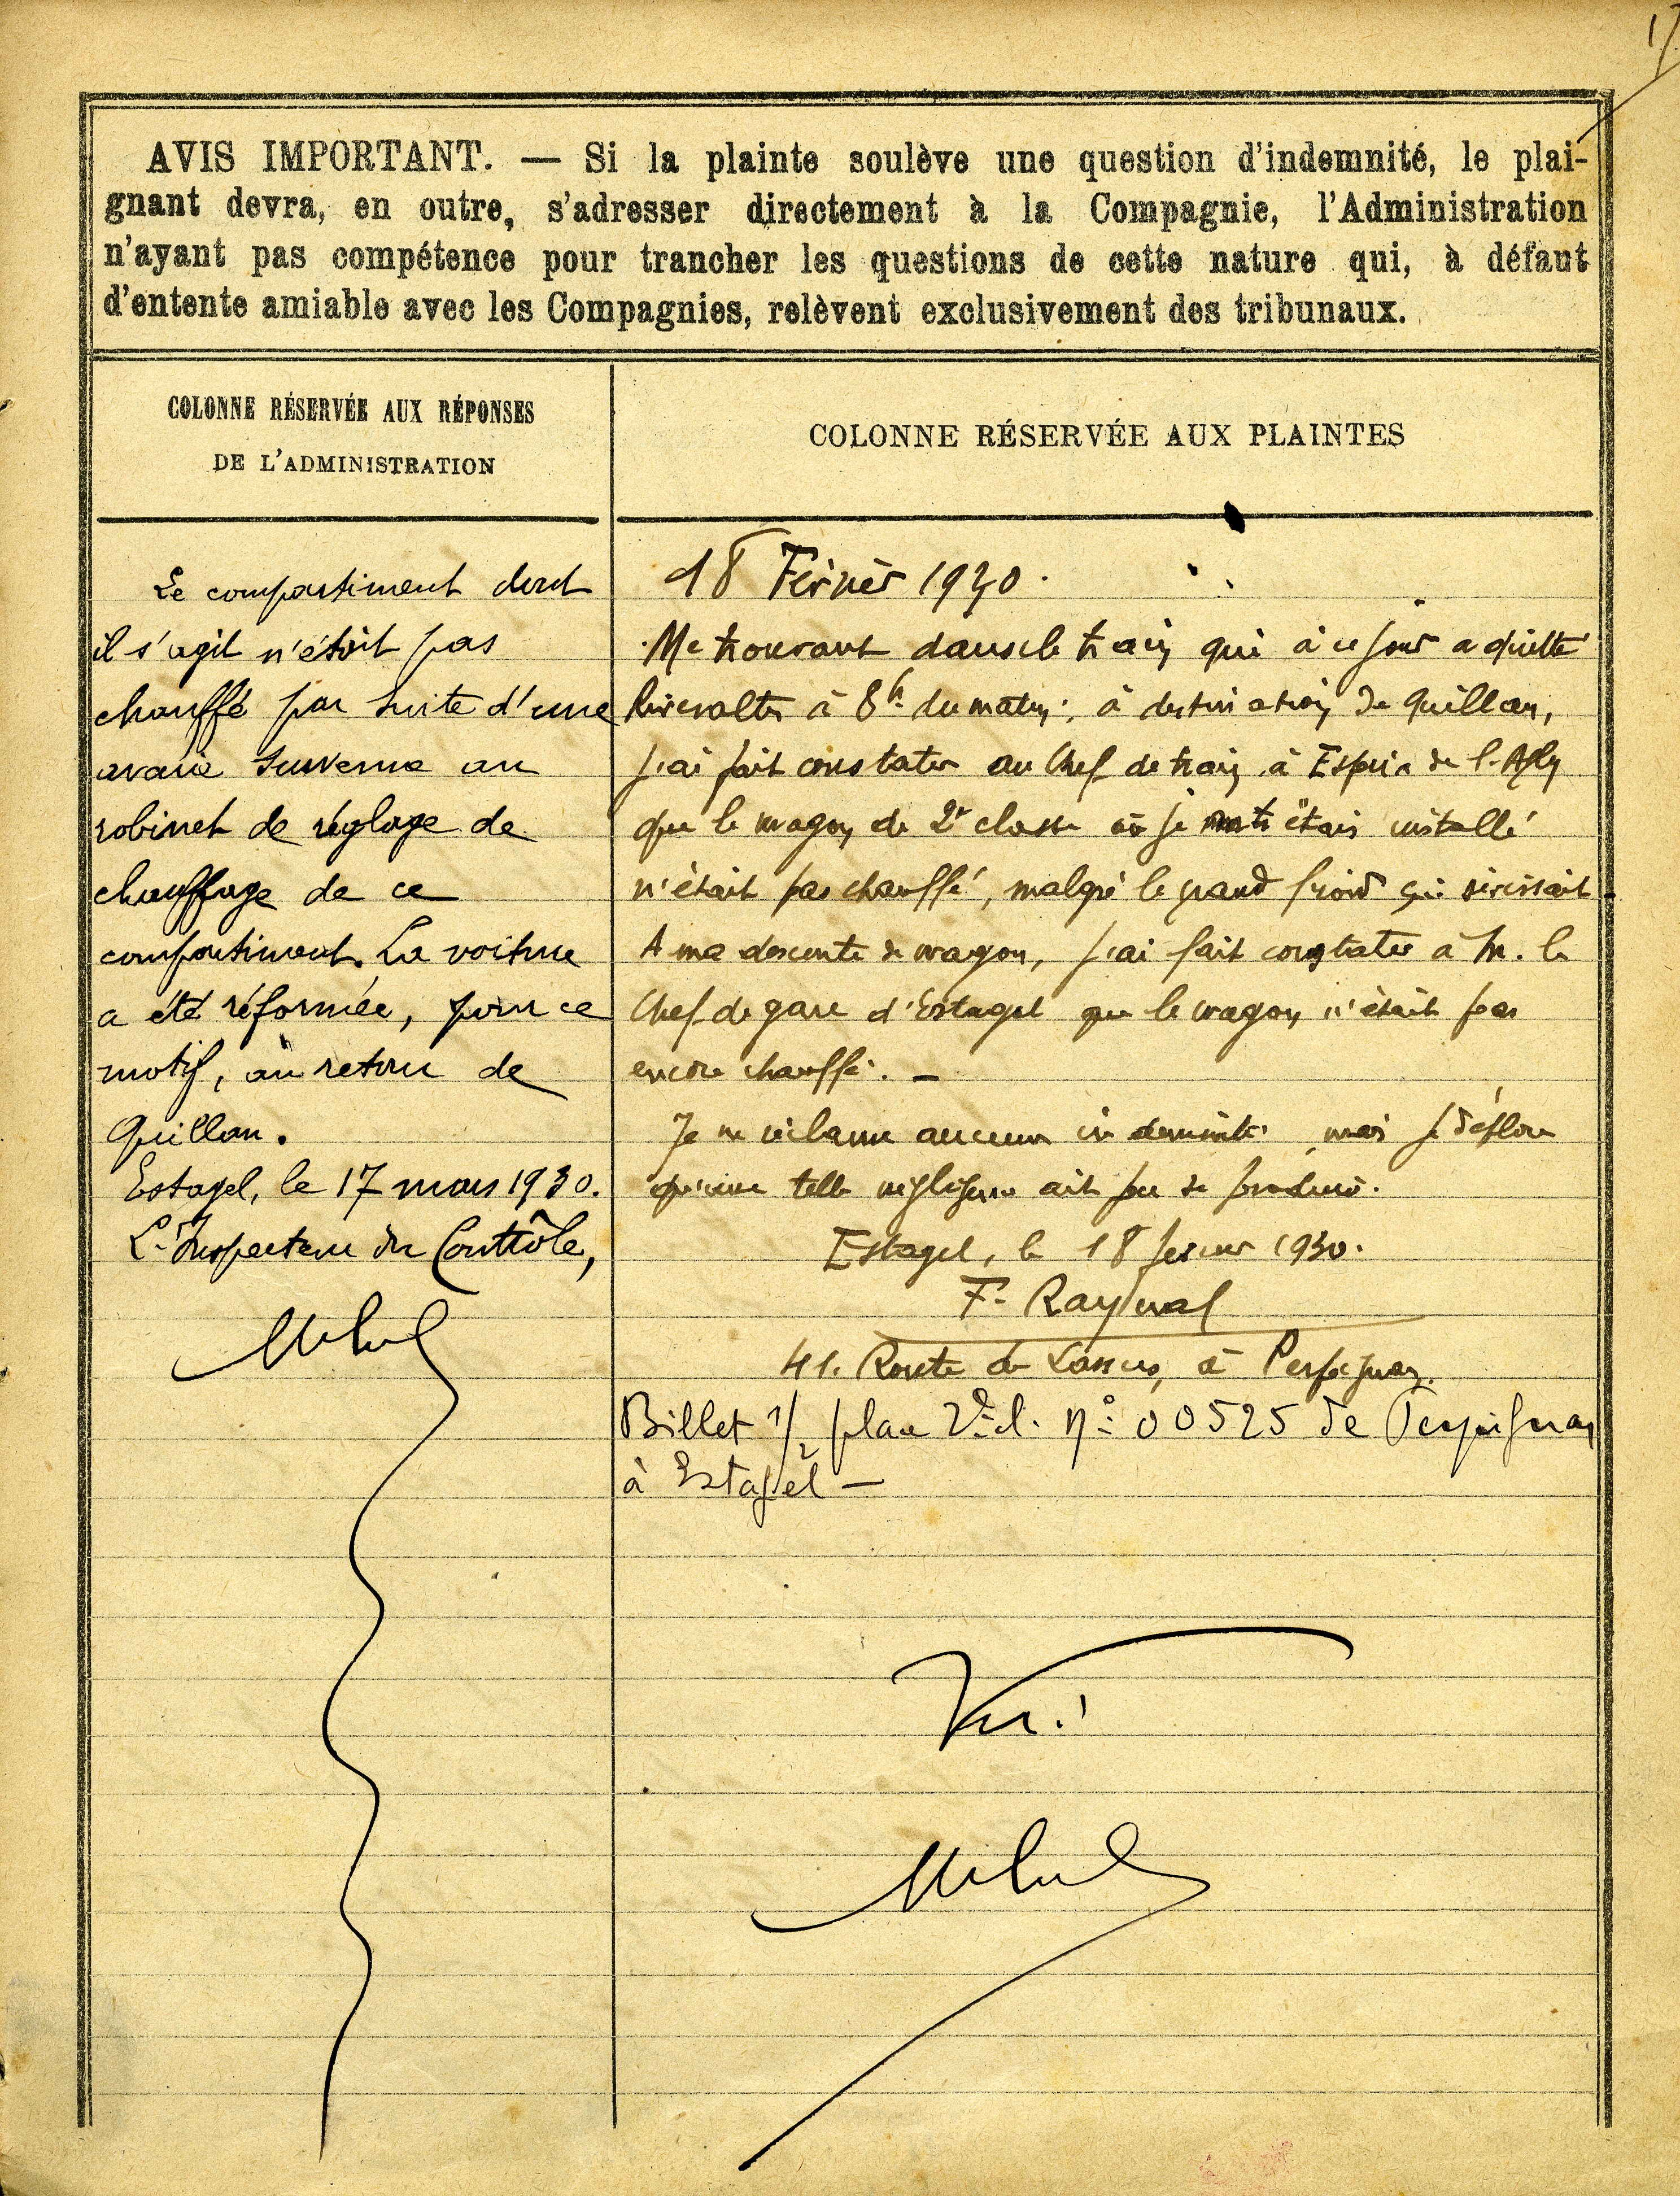 17
AVIS IMPORTANT. — Si la plainte soulève une question d'indemnité, le plai-
gnant devra, en outre, s'adresser directement à la Compagnie, l'Administration
n'ayant pas compétence pour trancher les questions de cette nature qui, à défaut
d'entente amiable avec les Compagnies, relèvent exclusivement des tribunaux.
COLONNE RÉSERVÉE AUX RÉPONSES
DE L'ADMINISTRATION
Le compartiment dont
il s'agit n'était pas
chauffé par suite d'une
avarie survenue au
robinet de réglage de
chauffage de ce
compartiment. La voiture
a été réformée, pour ce
motif, au retour de
Quillan.
Estagel, le 17 mars 1930.
L'Inspecteur du Contrôle,
COLONNE RÉSERVÉE AUX PLAINTES
18 Février 1930.
Me trouvant dans le train qui à ce jour a quitté
Rivesaltes à 8h du matin, à destination de Quillan,
j'ai fait constater au Chef de train à Espira de l'Agly
que le wagon de 2e classe où je m'étais installé
n'était pas chauffé, malgré le grand froid qui sévissait -
A ma descente de wagon, j'ai fait constater à M. le
Chef de gare d'Estagel que le wagon n'était pas
encore chauffé. -
Je ne réclame aucune indemnité, mais je déplore
qu'une telle négligence ait pu se produire.
Estagel, le 18 février 1930.
F. Raynal
41. Route de à Perpignan.
Billet 1/2 place 2e cl. N° 00525 de Perpignan
à Estagel —
Vu.